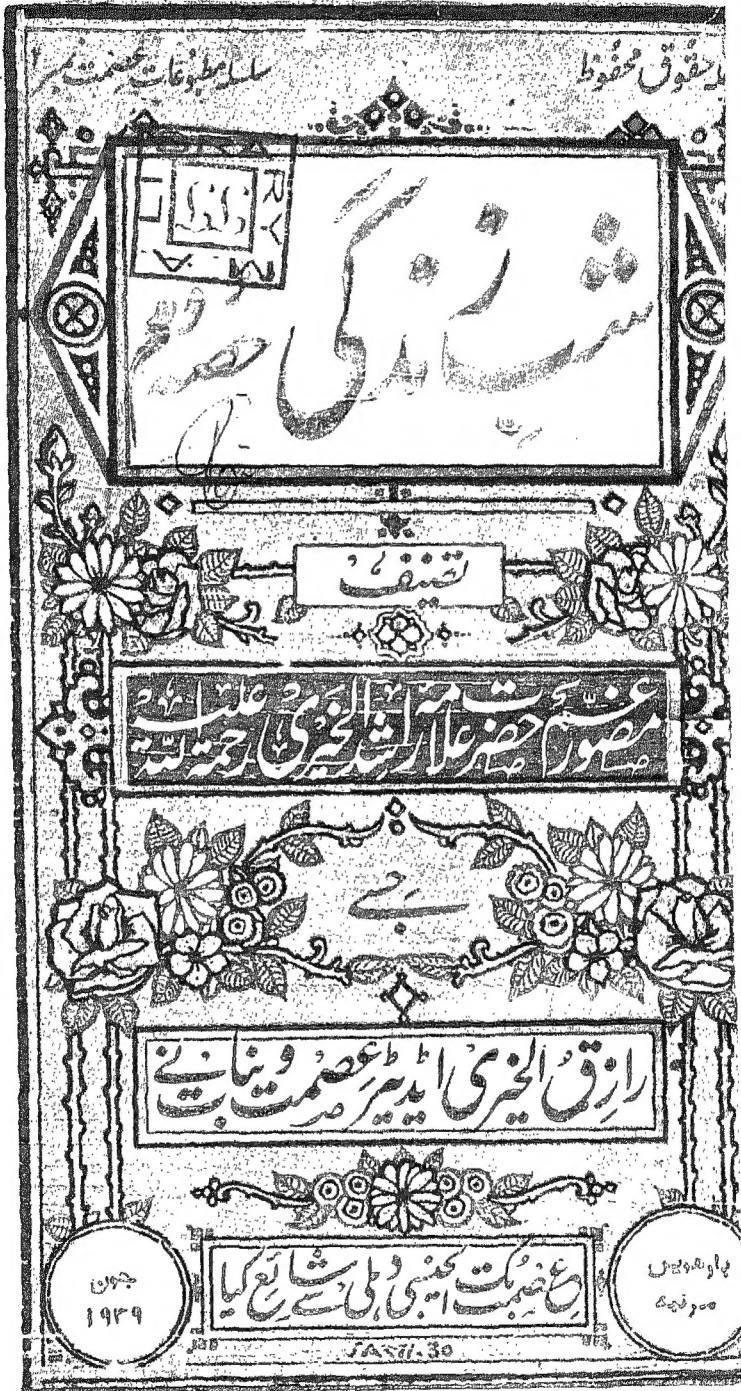 حقوق محفوظ
سلسلہ مطبوعات عصمت نمبر
شب زندگی
حصہ دوم
تصنیف
مصور غم حضرت علامہ راشد الخیری رحمۃ اللہ علیہ
جسے
رازق الخیری ایڈیٹر عصمت و بنات نے
عصمت بک ایجنسی دہلی سے شائع کیا
بارھویں
مرتبہ
جون
۱۹۳۹